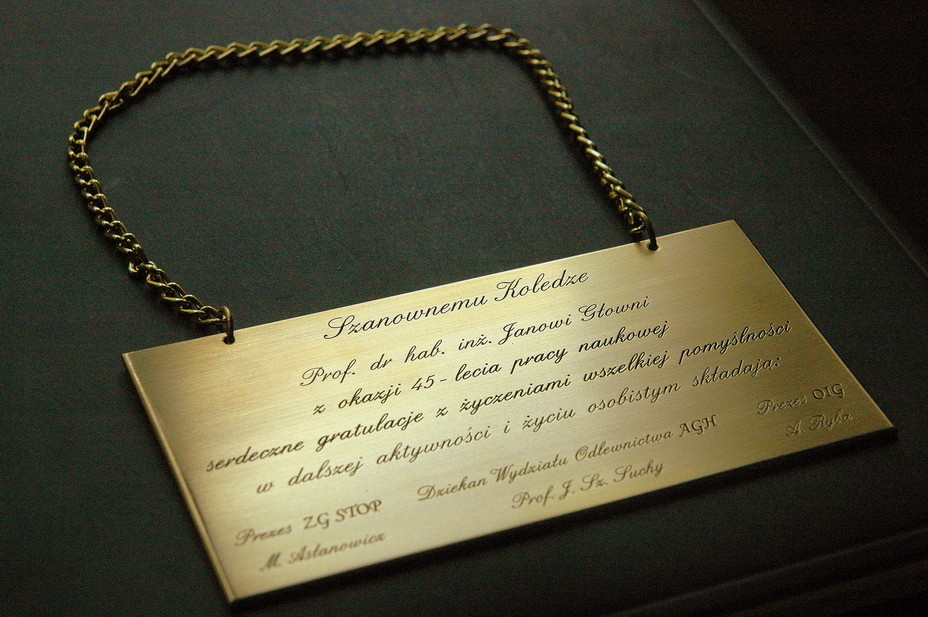 Szanownemu Koledze
Prof. dr hab. inż. Janowi Głowni
z okazji 45-lecia pracy naukowej
serdeczne gratulacje z życzeniami wszelkiej pomyślności
w dalszej aktywności i życiu osobistym składają:
Prezes ZG STOP
M. Asłanowicz
Dziekan Wydziału Odlewnictwa AGH
Prof. J. Sz. Suchy
Prezes OIG
A. Ryba